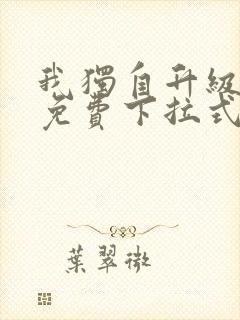 我獨自升級
免費下拉式
葉翠微